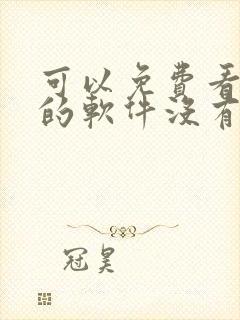 可以免费看
的軟件沒有
冠昊